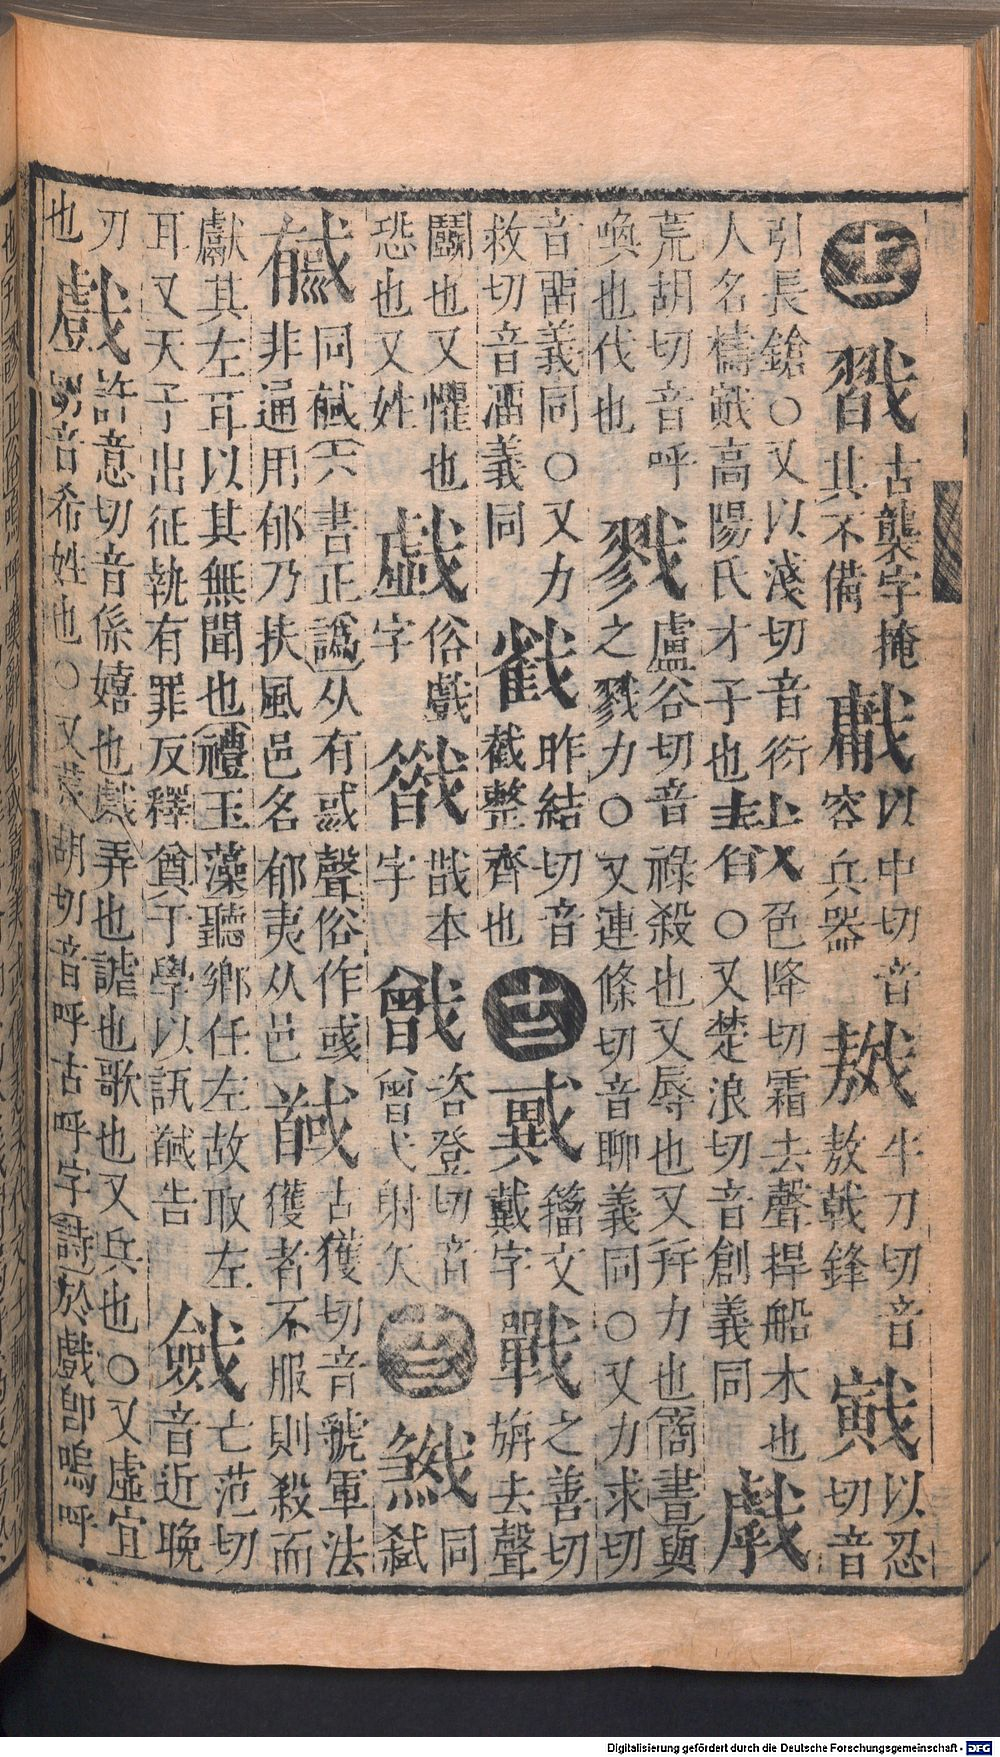 十一 古襲字掩其不備 以中切音容兵器 牛刀切音敖戟鋒 戭 以忍切音
引長鎗○又以淺切音衍人名檮戭高陽氏才子也 色降切霜去聲捍船木也○又楚浪切音創義同 戯
荒胡切音呼喚也代也 戮 盧谷切音祿殺也又辱也又幷力也商書與之戮力○又連條切音聊義同○又力求切
音畱義同○又力救切音溜義同 昨結切音截整齊也 十二 戴 籒文戴字 戰 之善切旃去聲
鬭也又懼也恐也又姓 戱 俗戲字 戢本字 咨登切音曾弋射矢 十三 同弑
同馘六書正譌从有惑聲俗作彧非通用郁乃扶風邑名郁夷从邑 馘 古獲切音虢軍法獲者不服則殺而
獻其左耳以其無聞也禮玉藻聽鄉任左故取左耳又天子出征執有罪反釋奠于學以訊馘告 亡范切音近晚
刃也 戲 許意切音係嬉也戲弄也謔也歌也又兵也○又虛宜切音希姓也○又荒胡切音呼古呼字詩於戲卽嗚呼
Digitalisierung gefördert durch die Deutsche Forschungsgemeinschaft - DFG